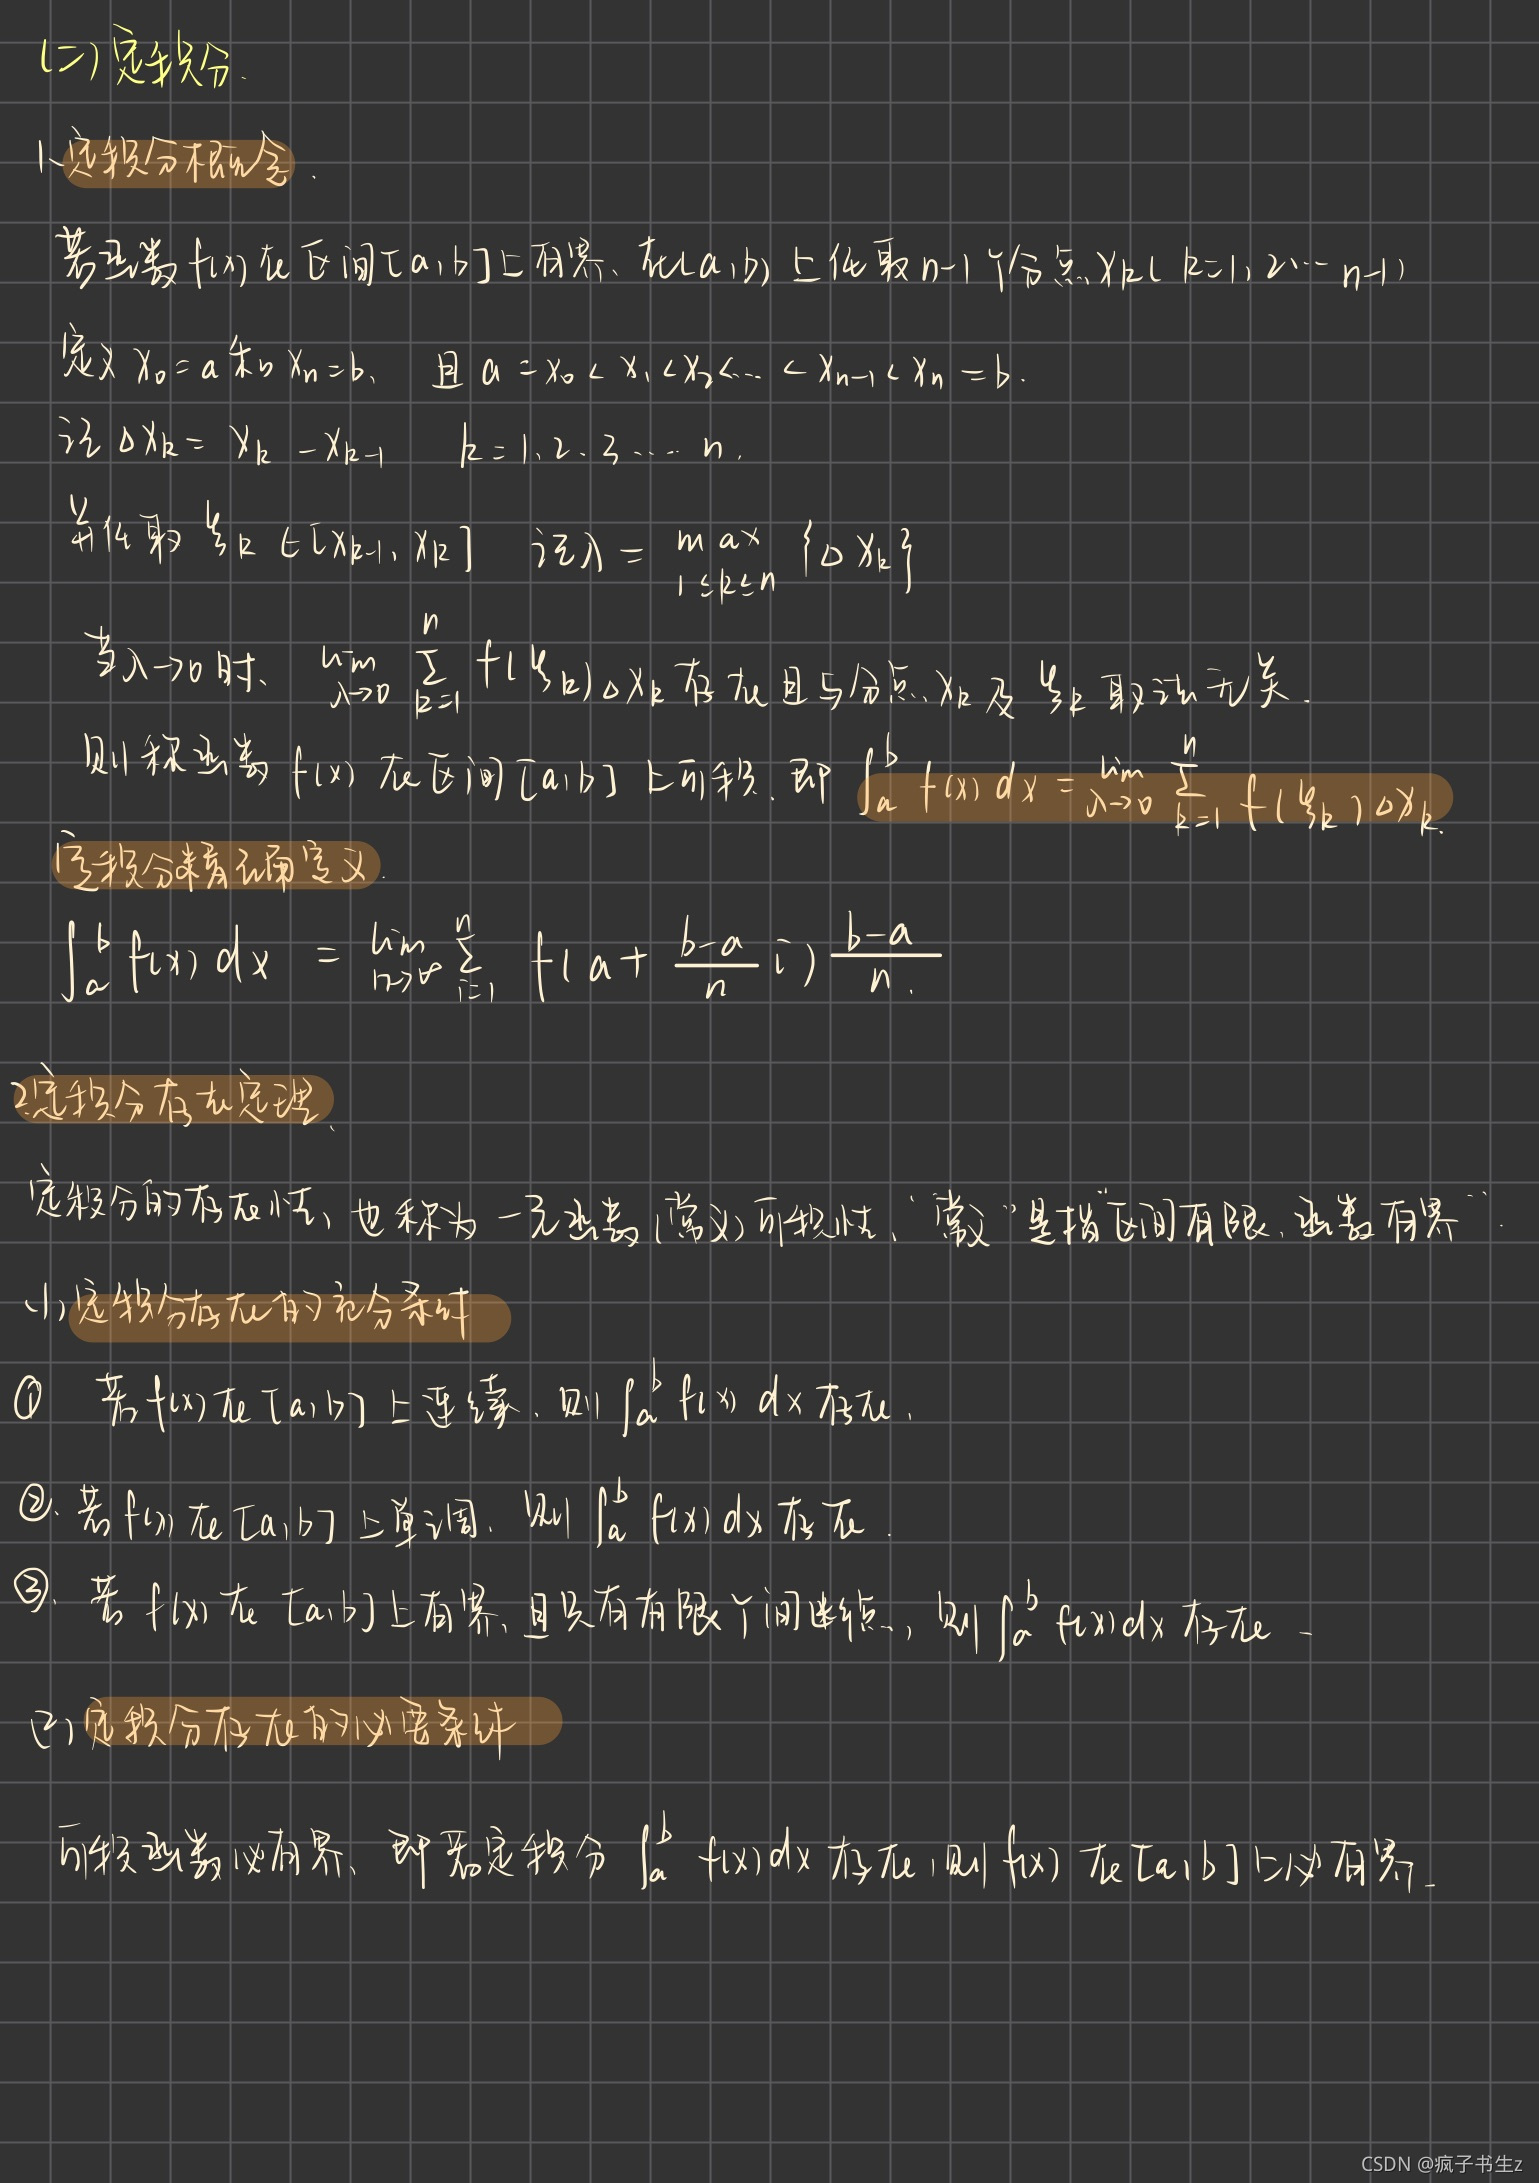 (二)定积分.
1、定积分概念.
若函数f(x)在区间[a,b]上有界、在(a,b)上任取n-1个分点x_k(k=1,2…n-1)
定义x_0=a和x_n=b、且a=x_0<x_1<x_2<…<x_{n-1}<x_n=b.
记Δx_k=x_k-x_{k-1} k=1.2.3….n.
并任取ξ_k∈[x_{k-1},x_k] 记λ=max_{1≤k≤n}{Δx_k}
当λ→0时、lim_{λ→0}∑_{k=1}^{n}f(ξ_k)Δx_k存在且与分点x_k及ξ_k取法无关.
则称函数f(x)在区间[a,b]上可积.即∫_a^b f(x)dx=lim_{λ→0}∑_{k=1}^{n}f(ξ_k)Δx_k.
定积分精确定义.
∫_a^b f(x)dx=lim_{n→∞}∑_{i=1}^{n}f(a+\frac{b-a}{n}i)\frac{b-a}{n}.
2.定积分存在定理、
定积分的存在性、也称为一元函数(常义)可积性、"常义"是指"区间有限、函数有界".
(1)定积分存在的充分条件
① 若f(x)在[a,b]上连续.则∫_a^b f(x)dx存在.
②.若f(x)在[a,b]上单调.则∫_a^b f(x)dx存在.
③.若f(x)在[a,b]上有界、且只有有限个间断点,则∫_a^b f(x)dx存在.
(2)定积分存在的必要条件
可积函数必有界、即若定积分∫_a^b f(x)dx存在,则f(x)在[a,b]上必有界.
CSDN @疯子书生z